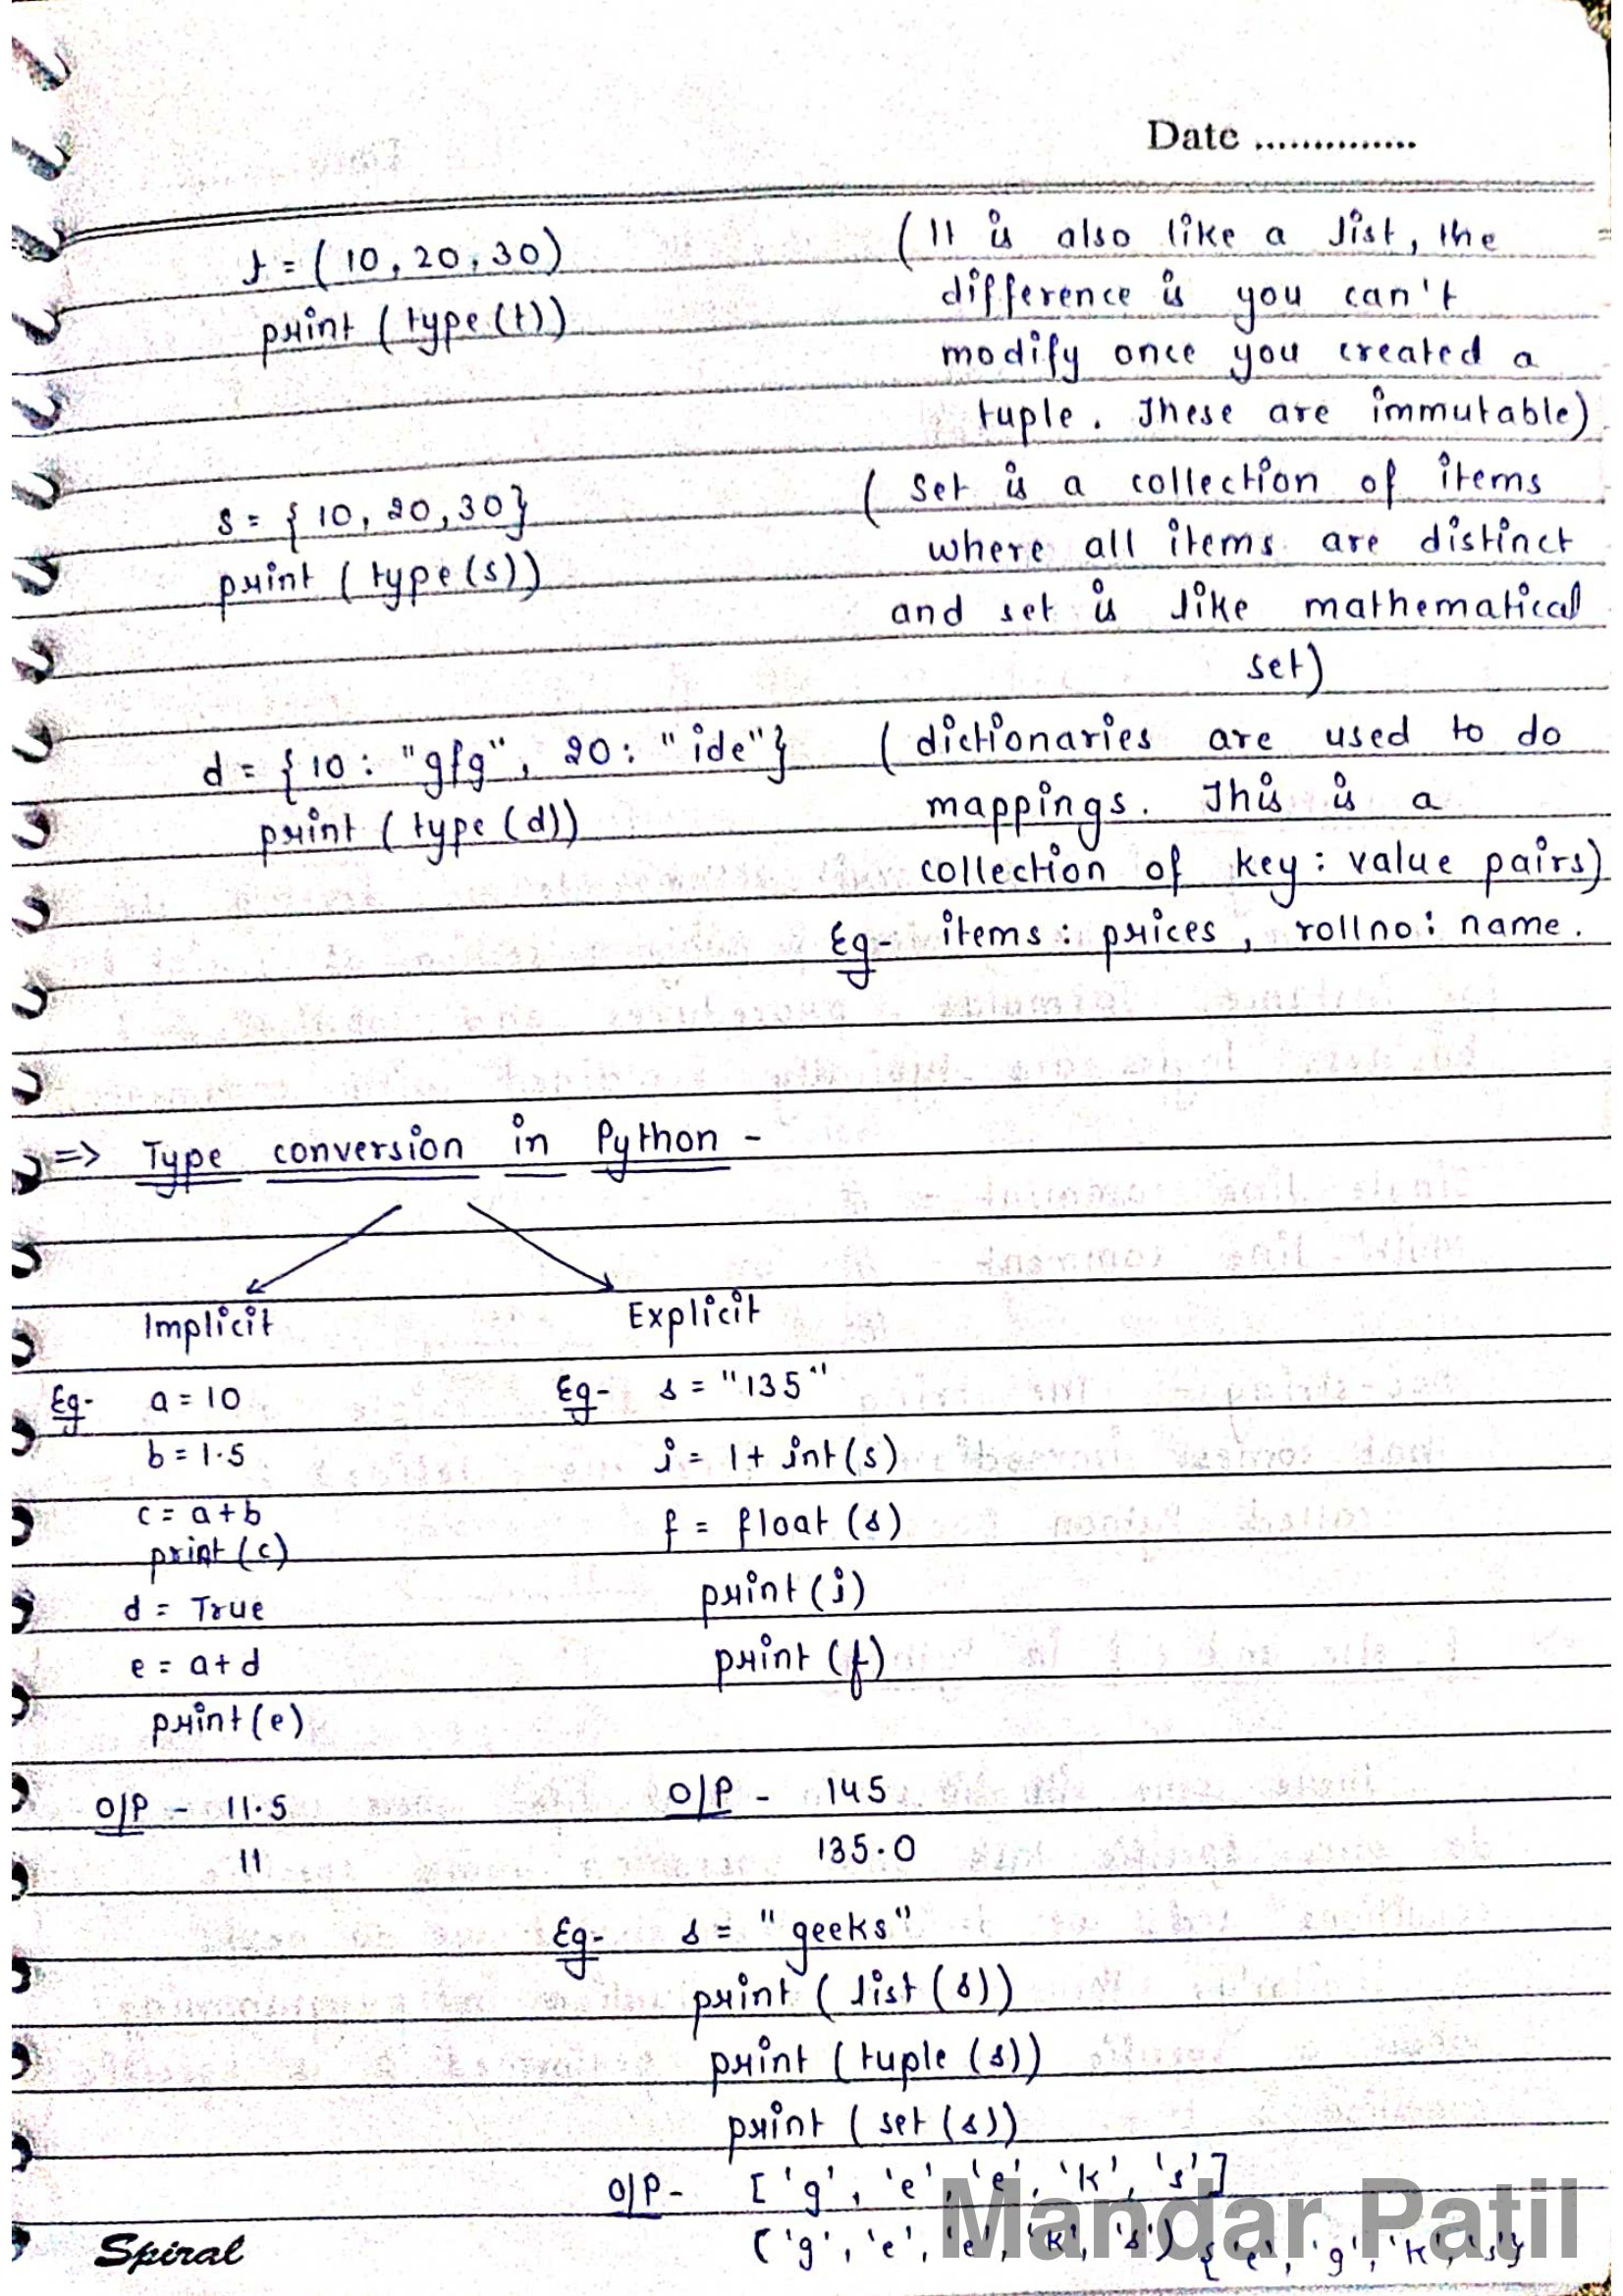 Date ..............
t = (10, 20, 30)
print (type(t))
(It is also like a list, the
difference is you can't
modify once you created a
tuple. These are immutable)
s = {10, 20, 30}
print (type(s))
(Set is a collection of items
where all items are distinct
and set is like mathematical
set)
d = {10: "gfg", 20: "ide"}
print (type(d))
(dictionaries are used to do
mappings. This is a
collection of key: value pairs)
Eg- items: prices, rollno: name.
=> Type conversion in Python -
Implicit
Eg- a = 10
b = 1.5
c = a+b
print (c)
d = True
e = a+d
print (e)
O/P - 11.5
11
Explicit
Eg- s = "135"
i = 1 + int(s)
f = float (s)
print (i)
print (f)
O/P - 145
135.0
Eg- s = "geeks"
print (list (s))
print (tuple (s))
print (set (s))
O/P- ['g', 'e', 'e', 'k', 's']
('g', 'e', 'e', 'k', 's') {'e', 'g', 'k', 's'}
Spiral
Mandar Patil